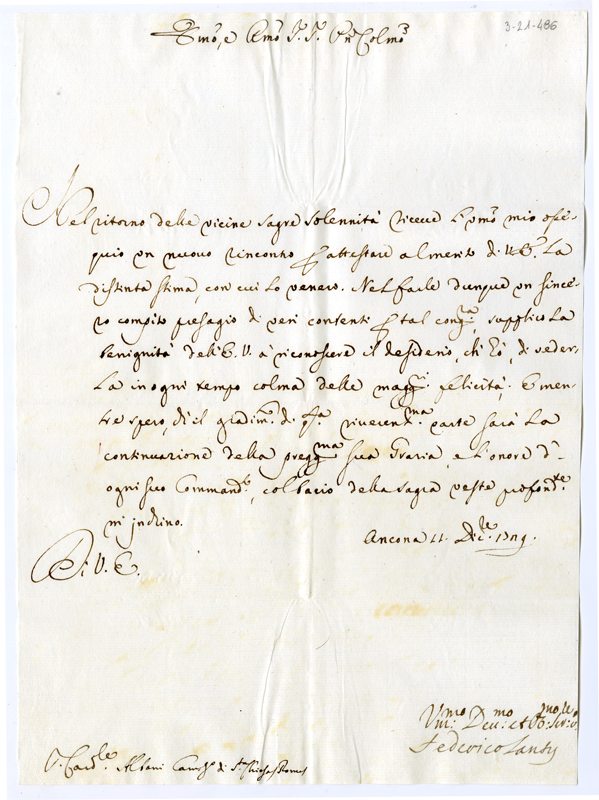 3-21-486
Emõ, e Rmõ Sr. Sr. Prõn Colmõ
Nel ritorno delle vicine sagre Solennità riceve l'umõ mio osse-
quio un nuovo rincontro per attestare al merito di V. E. la
distinta stima, con cui lo venero. Nel farle dunque un since-
ro compito presagio di veri contenti per tal congra. supplico la
benignità dell'E. V. à riconoscere il desiderio, ch'hò, di veder-
la in ogni tempo colma delle magri. felicità; E men-
tre spero, di il gradimto. di qta. riverendma. parte sarà la
continuazione della preggma sua Grazia, e l'onore d'-
ogni suo Commando, col bacio della sagra veste profondte.
m'inchino.
Ancona 11. Dicre. 1719.
Di V. E.
Vmmo: Devmo: et Obmo: Servre:
Federico Landi
S. Cardle Albani Camgo di Sta Chiesa Roma